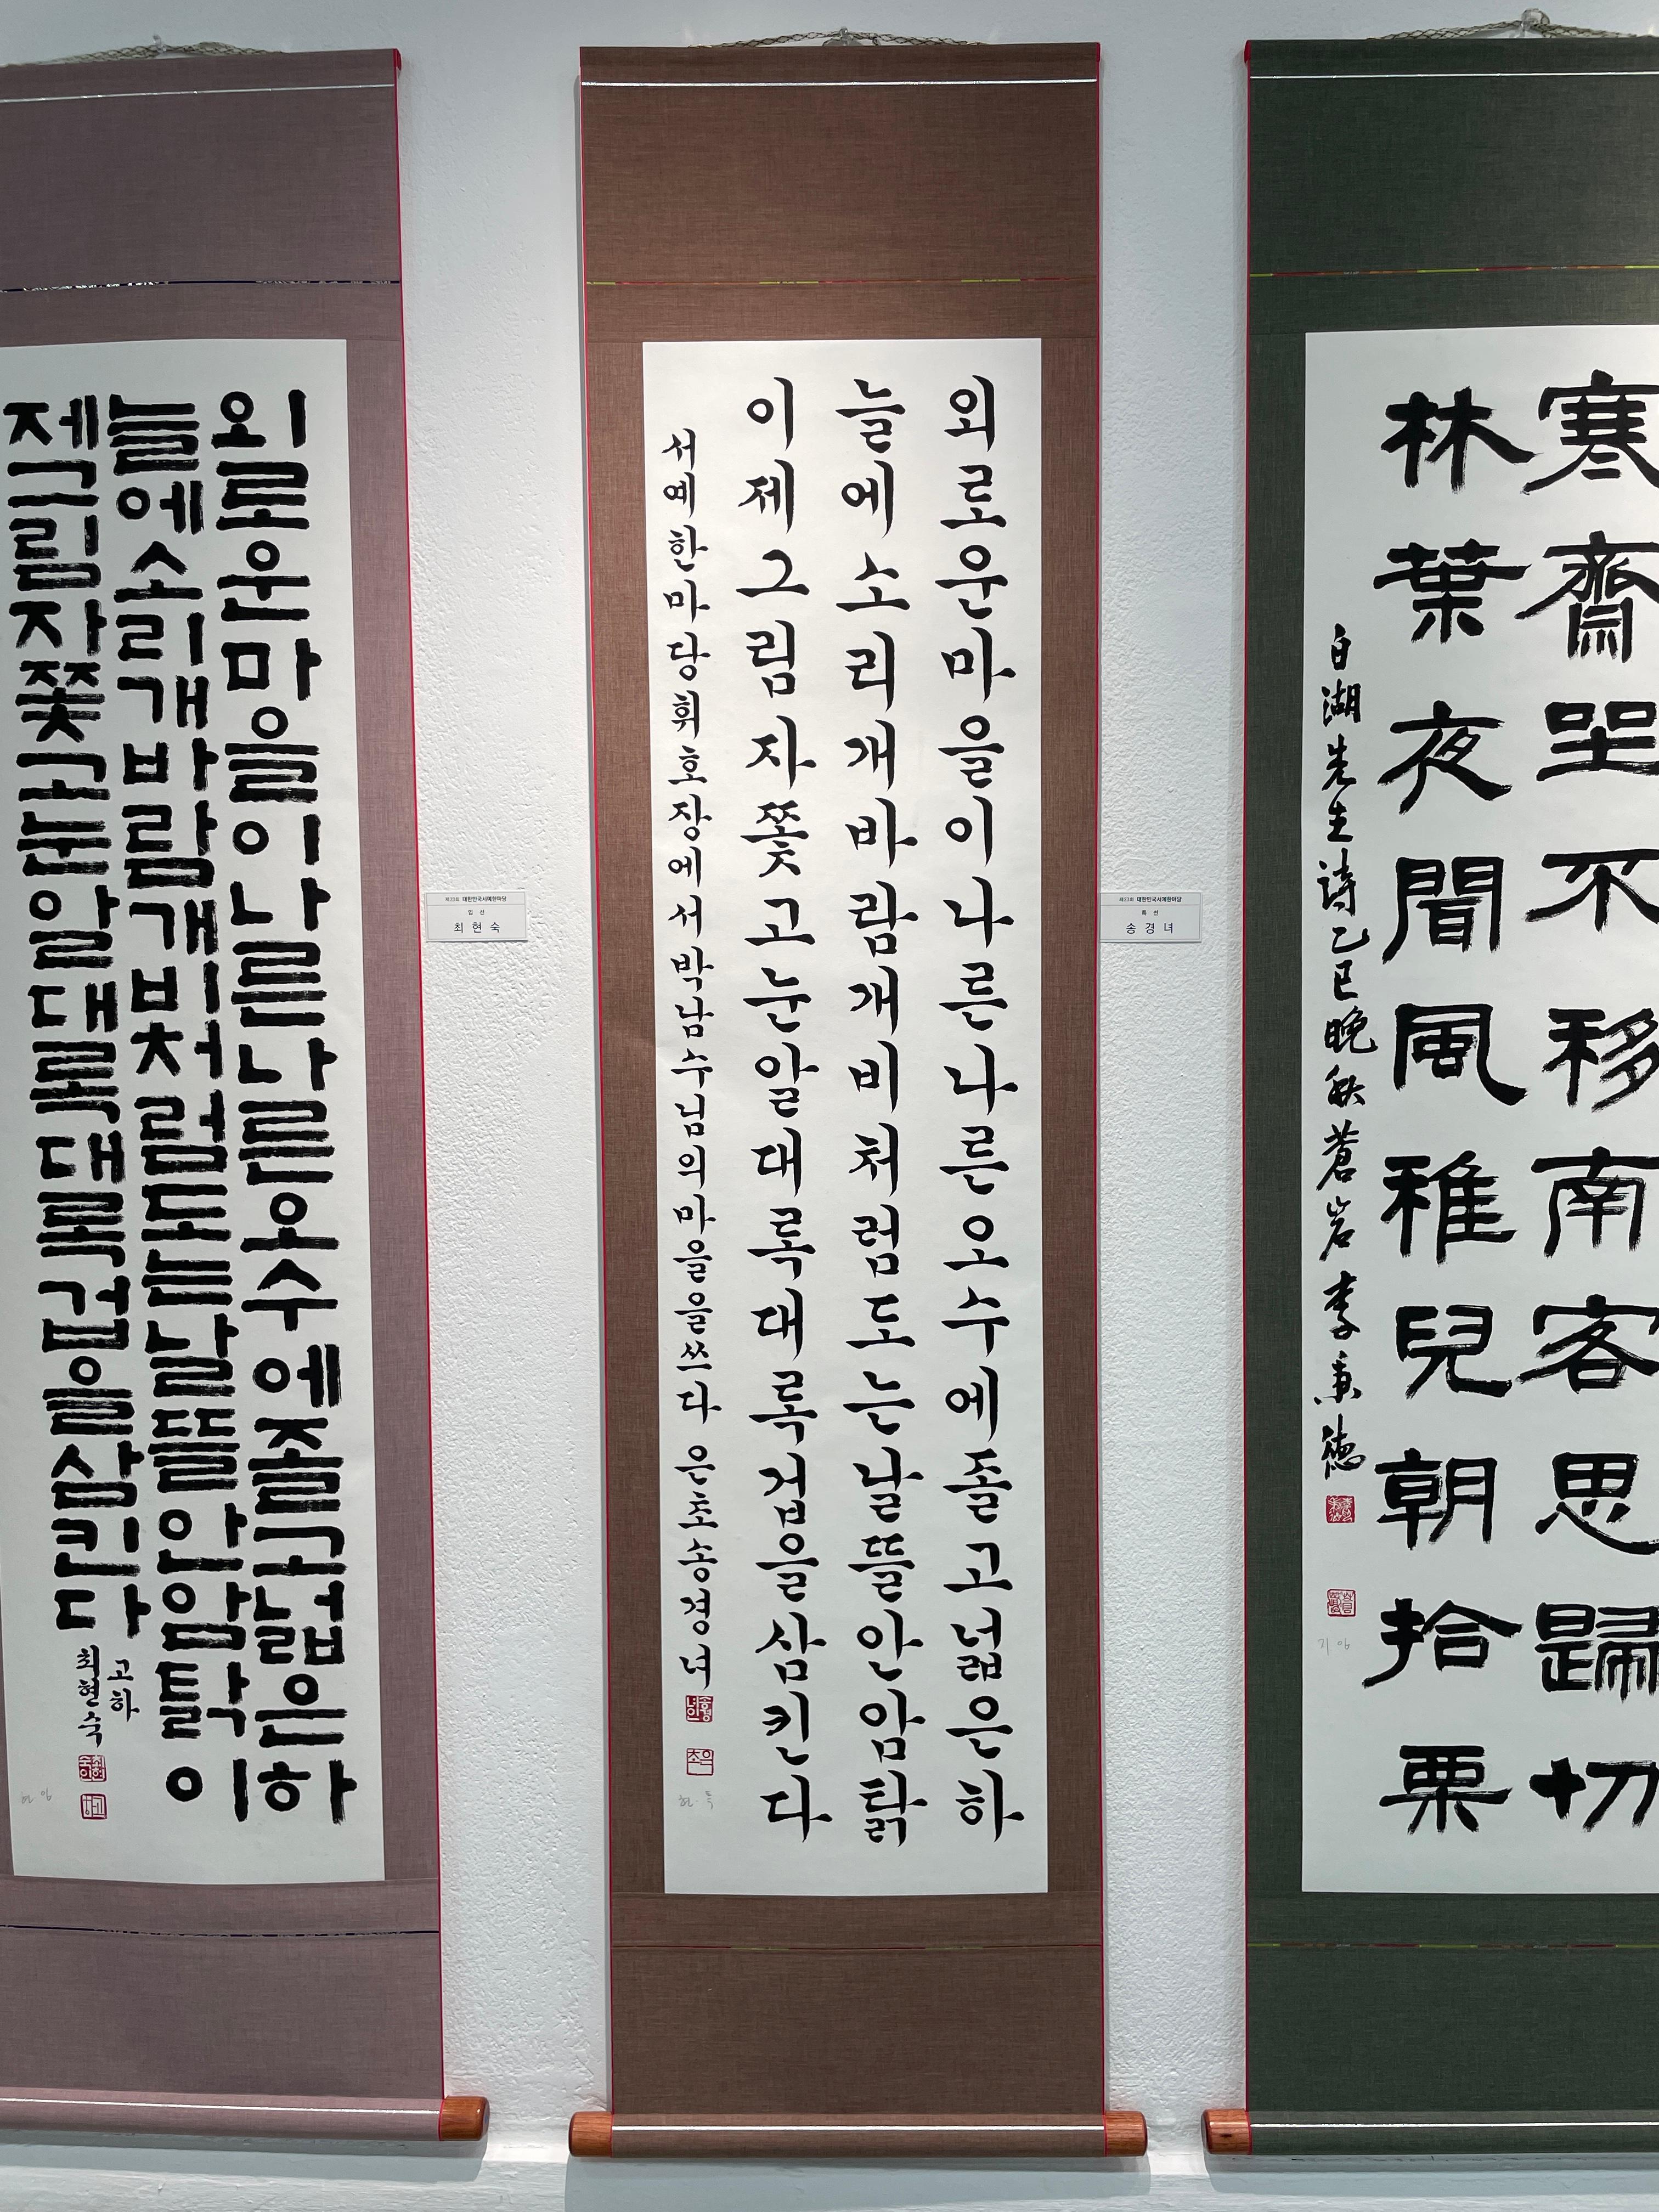 외로운마을이나른나른오수에졸고넓은하
늘에소리개바람개비처럼도는날뜰안암탉이
제그림자쫓고눈알대록대록겁을삼킨다
고하
최현숙
제23회 대한민국서예한마당
입 선
최 현 숙
외로운마을이나른나른오수에졸고넓은하
늘에소리개바람개비처럼도는날뜰안암탉
이제그림자쫓고눈알대록대록겁을삼킨다
서예한마당휘호장에서박남수님의마을을쓰다 은초송경녀
제23회 대한민국서예한마당
특 선
송 경 녀
寒齋坐不移南客思歸切
林葉夜聞風稚兒朝拾栗
白湖先生詩乙巳晩秋蒼岩李秉德